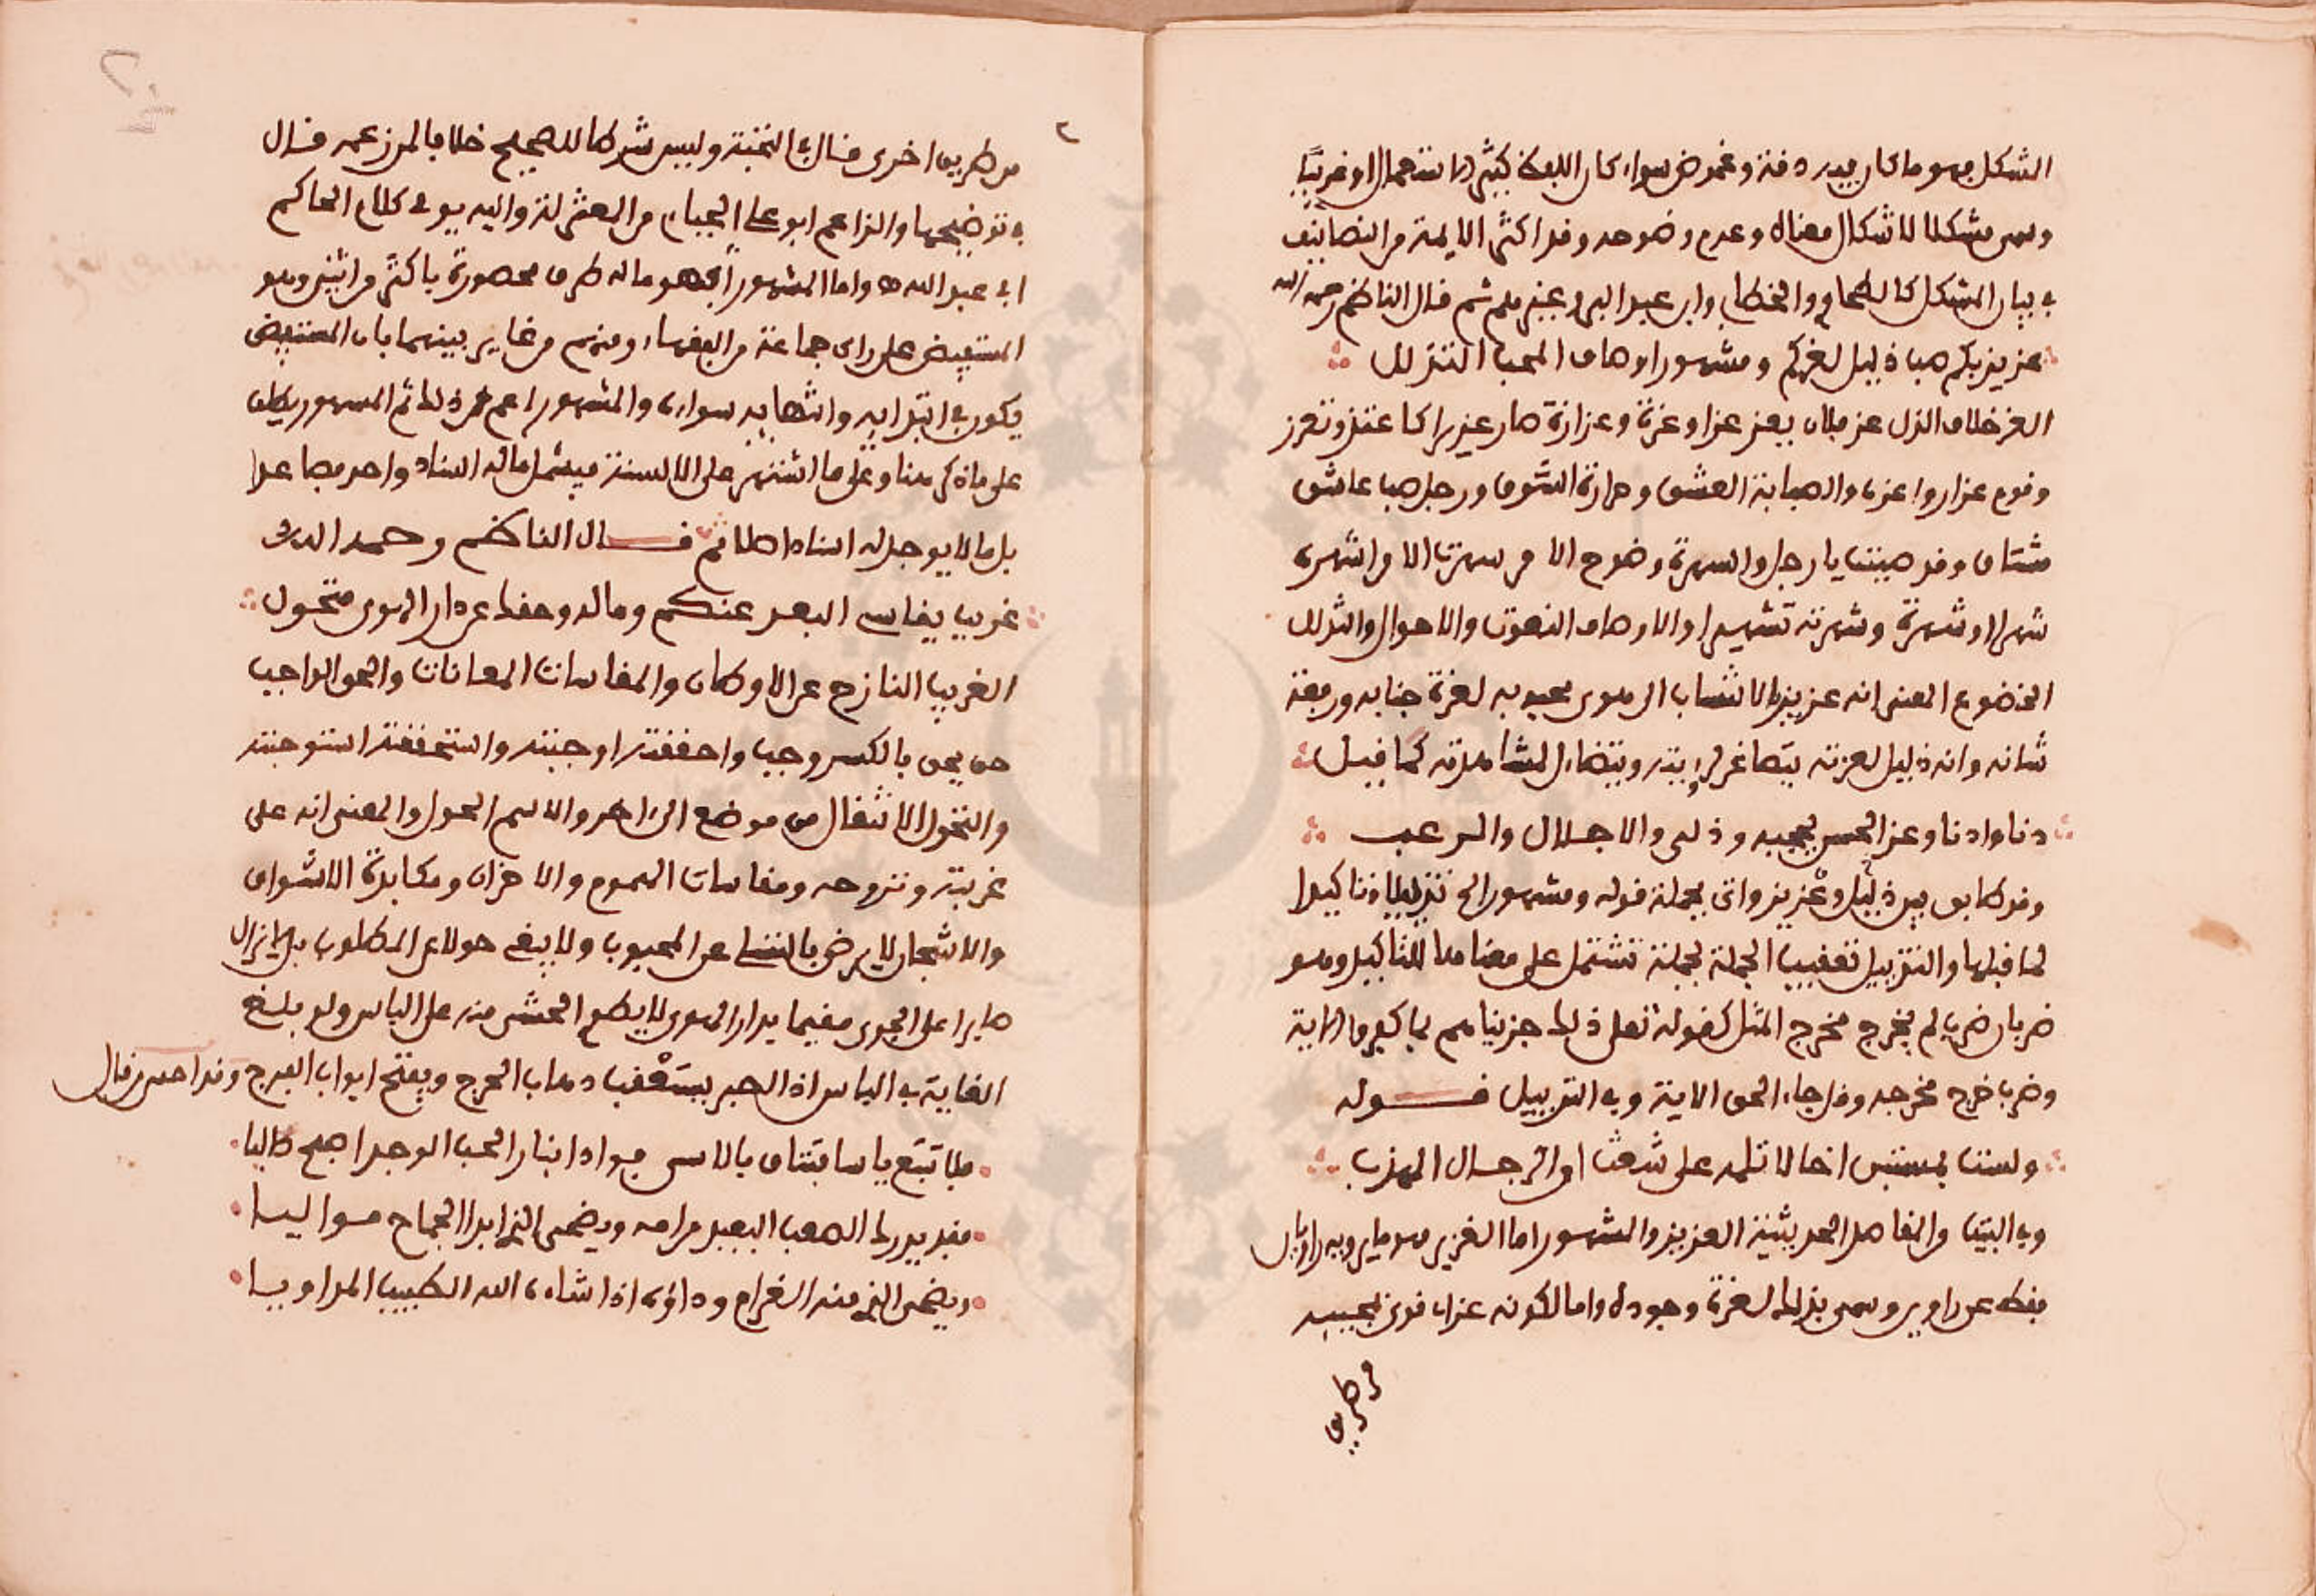 المشكل وهو ما كان فيه دقة وغموض سواء كان اللفظ كثير الاستعمال او غريبًا
وسمى مشكلا لاشكال معناه وعدم وضوحه وقد اكثر الايمة من التصانيف
في بيان المشكل كالطحاوي والخطابي وابن عبد البر وغيرهم ثم قال الناظم رحمه الله
عزيز بكم صب ذليل لغيركم ومشهور اوصاف المحب التذلل
العز خلاف الذل عز فلان يعز عزا وعزة وعزازة صار عزيزا كاعتز وتعزز
وقوم عزاز واعزة والصبابة العشق وحرارة الشوق ورجل صب عاشق
مشتاق وقد صببت يا رجل والشهرة وضوح الامر شهرت الامر اشهره
شهرا وشهرة وشهرته تشهيرا والاوصاف النعوت والاحوال والتذلل
الخضوع المعنى انه عزيز بالانتساب الى هوى محبوبه لعزة جنابه ورفعة
شانه وانه ذليل لعزته يتصاغر لرؤيته ويتضاءل لمشاهدته كما قيل
دنا وادنا وعز الحسن يحجبه وذلى والاجلال والرعب
وقد طابق بين ذليل وعزيز واتى بجملة قوله ومشهور الخ تذييلا وتاكيدا
لما قبلها والتذييل تعقيب الجملة بجملة تشتمل على معناها للتاكيد وهو
ضربان ضرب لم يخرج مخرج المثل كقوله تعلى ذلك جزيناهم بما كفروا الاية
وضرب خرج مخرجه وقل جاء الحق الاية وفي التذييل قوله
ولست بمستبق اخا لا تلمه على شعث اي الرجال المهذب
وفي البيت من المقاصد الحديثية العزيز والمشهور اما العزيز فهو ما يرويه راويان
فقط عن راويين وسمي بذلك لعزة وجوده واما لكونه عز اي قوي بمجيئه
من طريق
٢
من طريق اخرى قال في النخبة وليس شرطا للصحيح خلافا لمن زعمه قال
في توضيحها والزاعم ابو علي الجباءي من المعتزلة واليه يومي كلام الحاكم
ابي عبد الله ه واما المشهور فهو ما له طرق محصورة باكثر من اثنين وهو
المستفيض على راي جماعة من الفقهاء ومنهم من غاير بينهما بان المستفيض
يكون في ابتدايه وانتهايه سواء والمشهور اعم من ذلك ثم المشهور يطلق
على ما ذكر هنا وعلى ما اشتهر على الالسنة فيشمل ما له اسناد واحد فصاعدا
بل ما لا يوجد له اسناد اصلا ثم قال الناظم رحمه الله
غريب يقاسي البعد عنكم وما له وحقك عن دار الهوى متحول
الغريب النازح عن الاوطان والمقاسات المعانات والحق الواجب
حق يحق بالكسر وجب واحققته اوجبته واستحققته استوجبته
والتحول الانتقال من موضع الى اخر والاسم الحول والمعنى انه على
غربته ونزوحه ومقاسات الهموم والاحزان ومكابدة الاشواق
والاشجان لا يرضى بالتسلي عن المحبوب ولا يبغي حولا عن المطلوب بل لا يزال
صابرا على الجوى مقيما بدار الهوى لا يطمع الحشى منه على الياس ولو بلغ
الغاية في الياس اذ الصبر يستعقب ذهاب الحرج ويفتح ابواب الفرج وقد احسن من قال
فلا تتبع ياسا بتناي بالاسى فوادا بنار الحب الوجد اصبح طالبا
فقد يدرك الصعب البعيد مرامه ويضحى الذي ابدا الجماح مواليا
ويضحى الذي منه الغرام وداؤه اذا شاء الله الطبيب المداويا